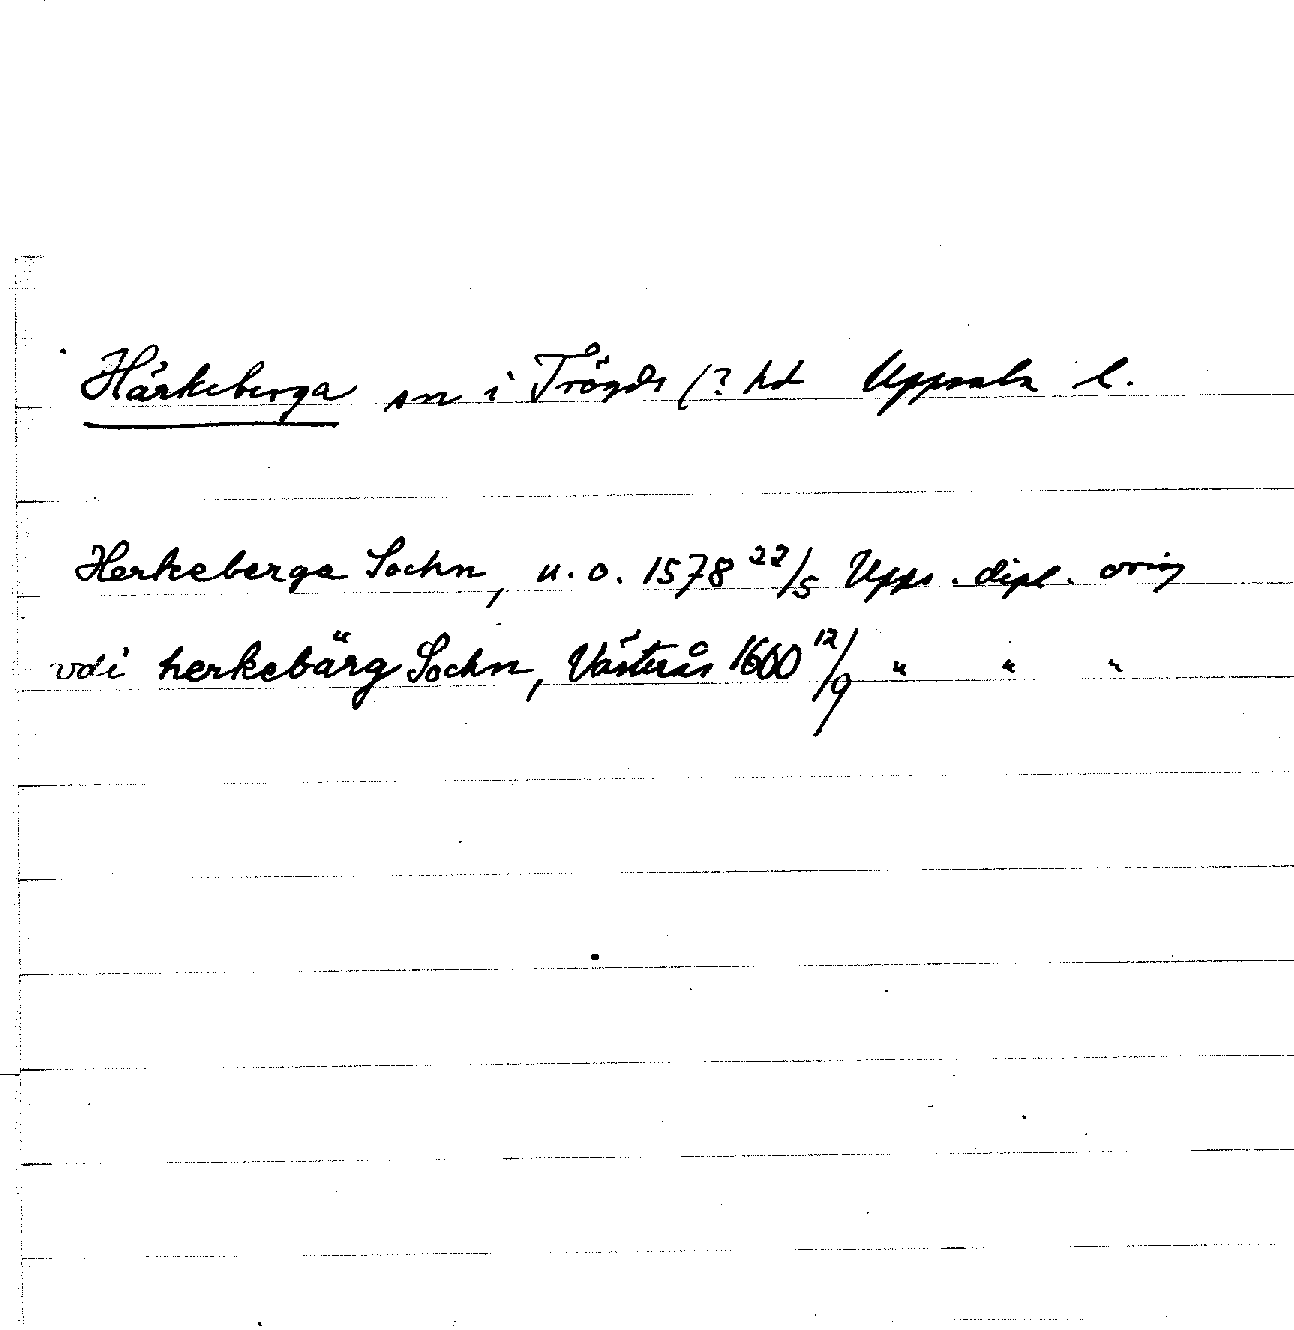 Härkeberga sn i Trögds (? hd Uppsala l.
Herkeberga Sochn, u. o. 1578 22/5 Upps. dipl. orig
vdi herkebärg Sochn, Västerås 1600 12/9 " " "